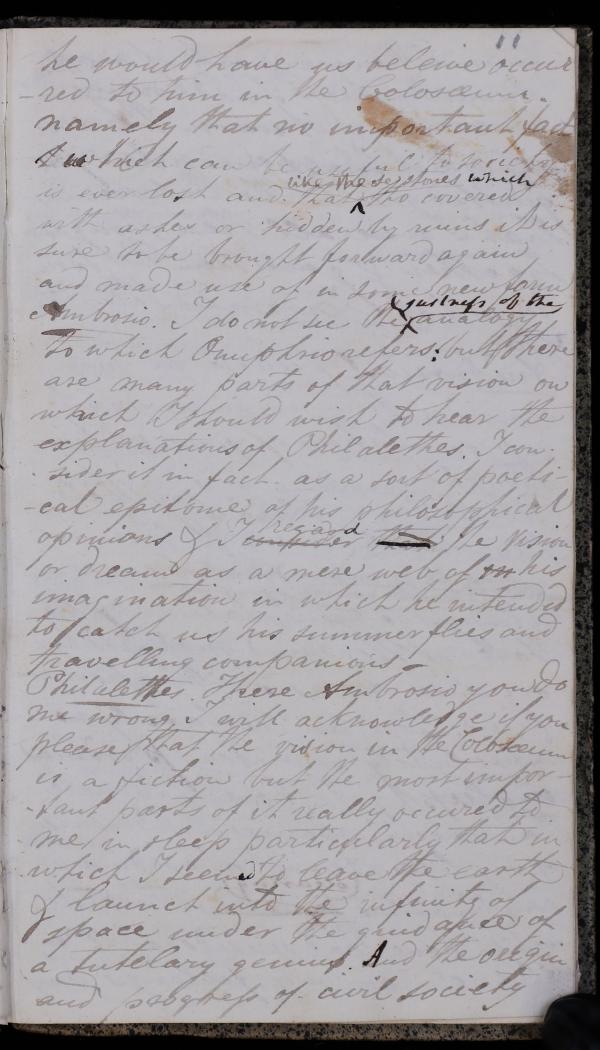 11
he would have us beleive occur
-red to him in the Colosæum.
namely that no important fact
which can be useful to society
like these stones which
is ever lost and that tho covered
with ashes or hidden by ruins it is
sure to be brought forward again
and made use of in some new form
justness of the
Ambrosio. I do not see the analogy
to which Onuphrio refers: but there
are many parts of that vision on
which I should wish to hear the
explanations of Philalethes. I con-
sider it in fact as a sort of poeti
-cal epitome of his philosophical
regard
opinions & I consider the vision
or dream as a mere web of his
imagination in which he intended
to catch us his summer flies and
travelling companions -
Philalethes. There Ambrosio you do
me wrong, I will acknowledge if you
please that the vision in the Colosæum
is a fiction but the most impor-
-tant parts of it really occured to
me in sleep particularly that in
which I seemed to leave the earth
& launch into the infinity of
space under the guidance of
a tutelary genius. And the origin
and progress of civil society